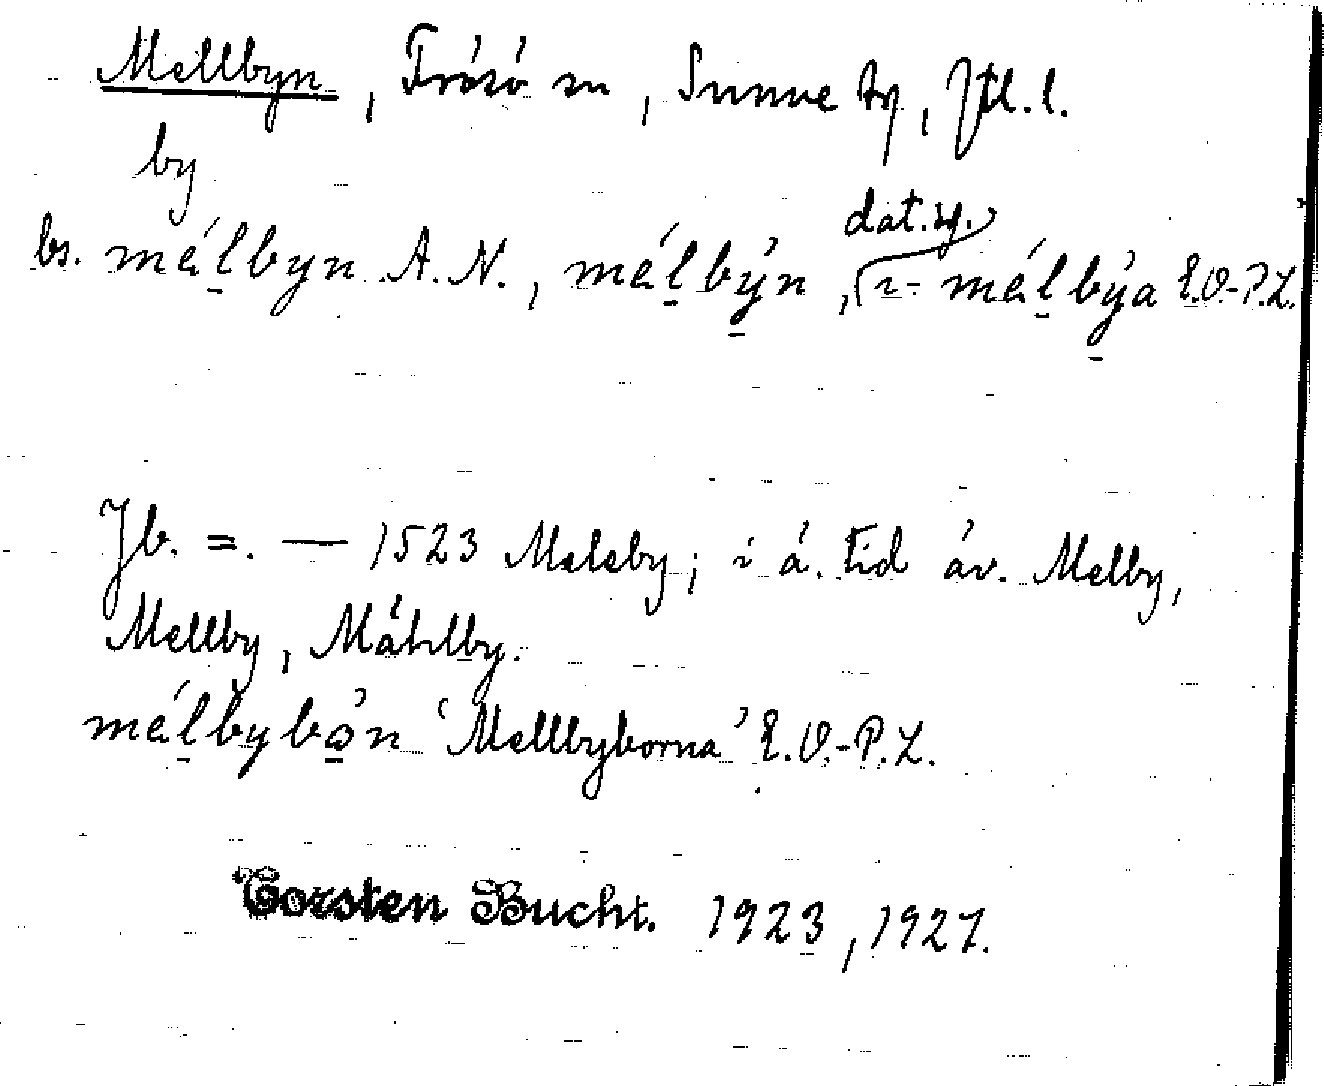 Mellbyn, Frösö sn, Sunne tg, Jtl. l.
by
dat. sg.
bs. mélbyn A.N., mélbýn, i- mélbýa E.O-P.L.
Jb. =. — 1523 Meleby; i ä. tid äv. Melby,
Mellby, Mählby.
mélbybón 'Mellbyborna' E.O.-P.L.
Torsten Bucht. 1923, 1927.